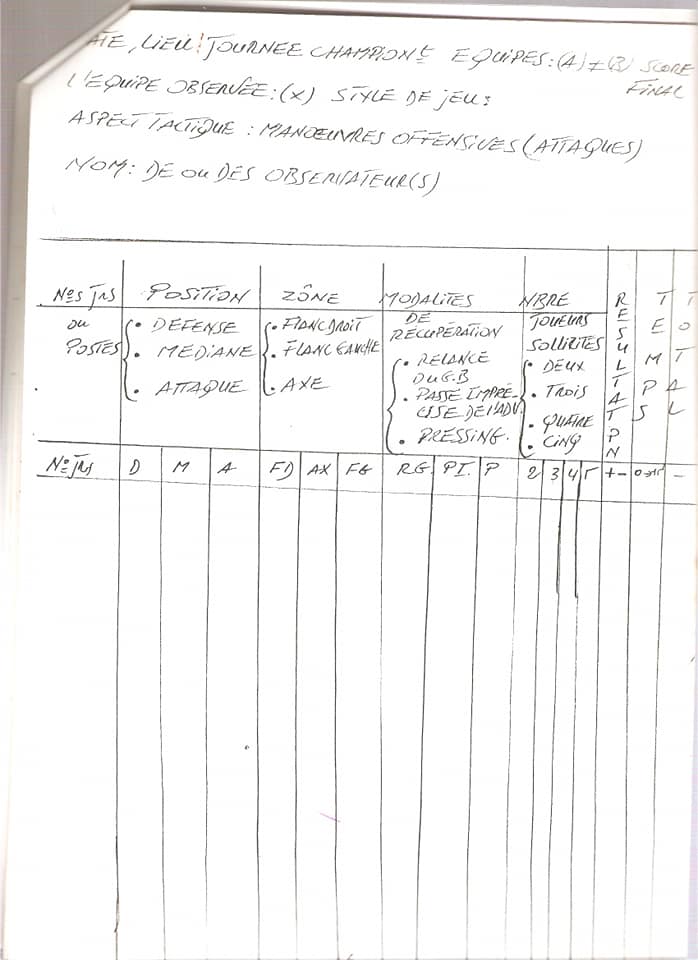 ATE, LIEU! JOURNEE CHAMPIONt EQUIPES: (A) ≠ (B) SCORE FINAL
L'EQUIPE OBSERVÉE: (X) STYLE DE JEU:
ASPECT TACTIQUE : MANŒUVRES OFFENSIVES (ATTAQUES)
NOM: DE OU DES OBSERVATEUR(S)
Nos Jrs ou POSTES
POSITION
• DEFENSE
• MEDIANE
• ATTAQUE
ZÔNE
• FLANC DROIT
• FLANC GAUCHE
• AXE
MODALITES
DE
RÉCUPÉRATION
• RELANCE
DU G.B
• PASSE IMPRÉ-
CISE DE L'ADV.
• PRESSING.
NBRE
JOUEURS
SOLLICITÉS
• DEUX
• TROIS
• QUATRE
• CINQ
RESULTAT PN
TEMPS
TOTAL
No Jrs D M A FD AX FG RG PI. P 2 3 4 5 + - -